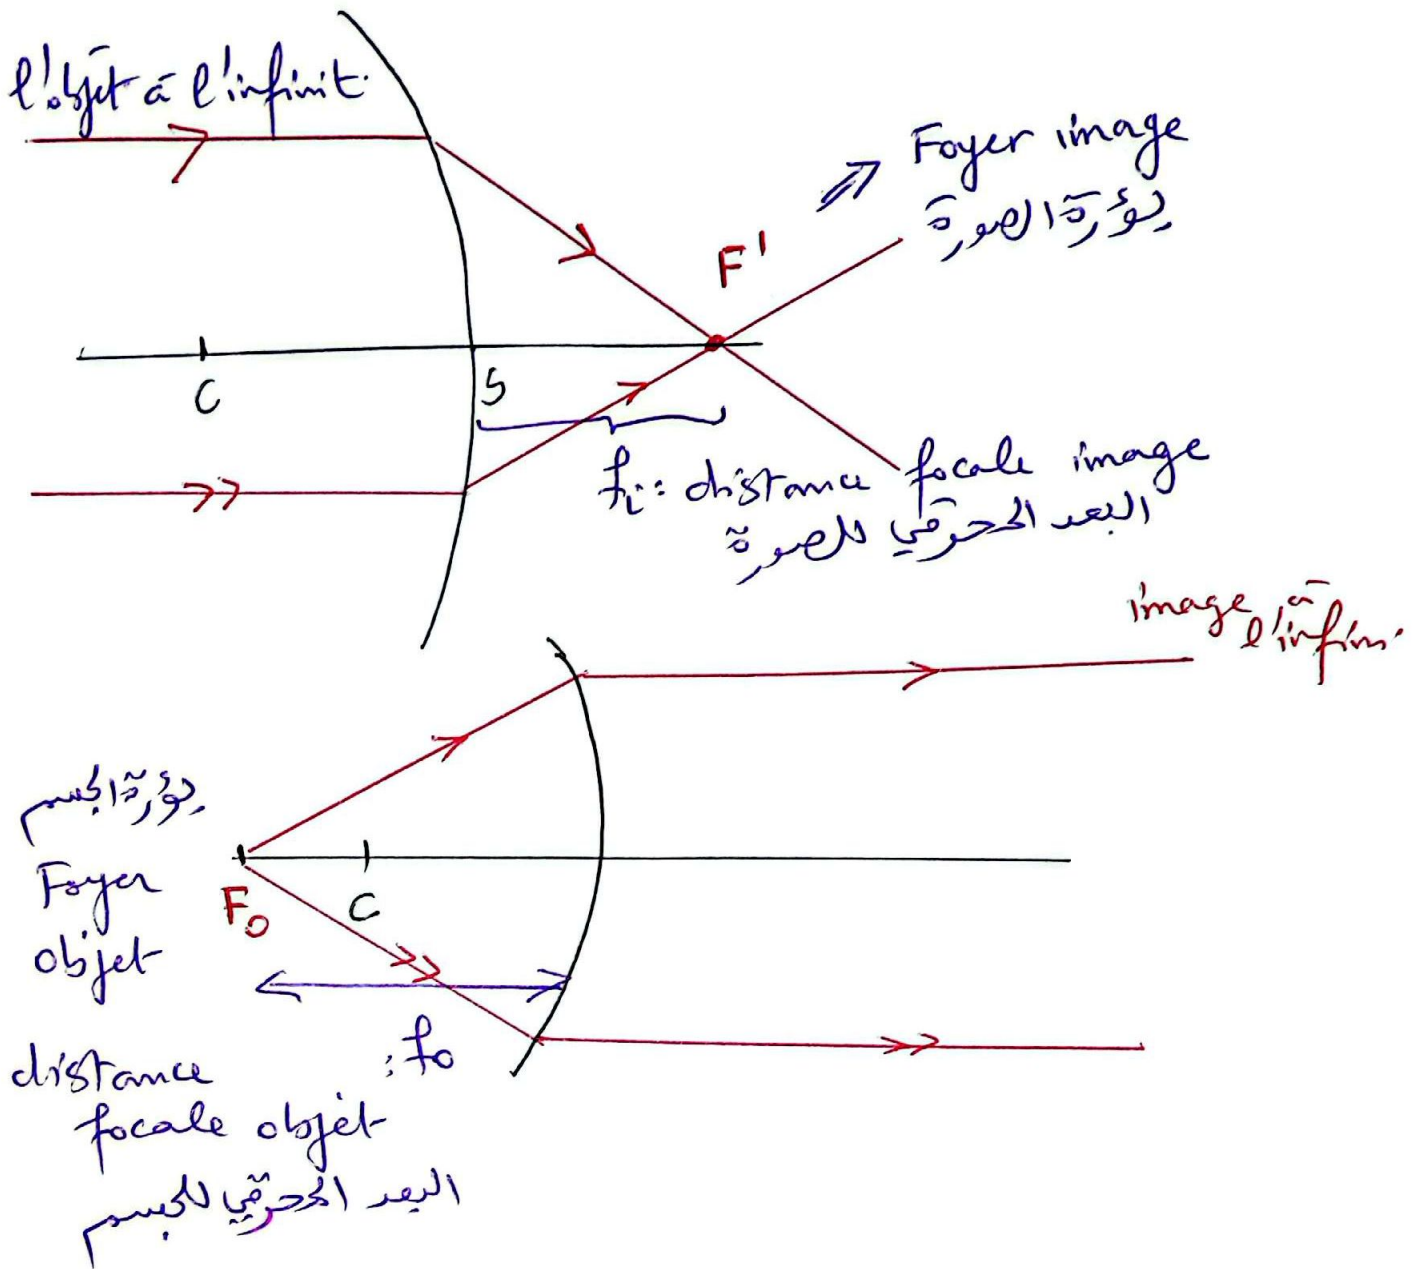 l'objet à l'infinit.
Foyer image
بؤرة الصورة
F'
C
S
fi : distance focale image
البعد المحرقي للصورة
image à
l'infini
بؤرة الجسم
Foyer
objet
F₀
C
distance
: f₀
focale objet
البعد المحرقي للجسم